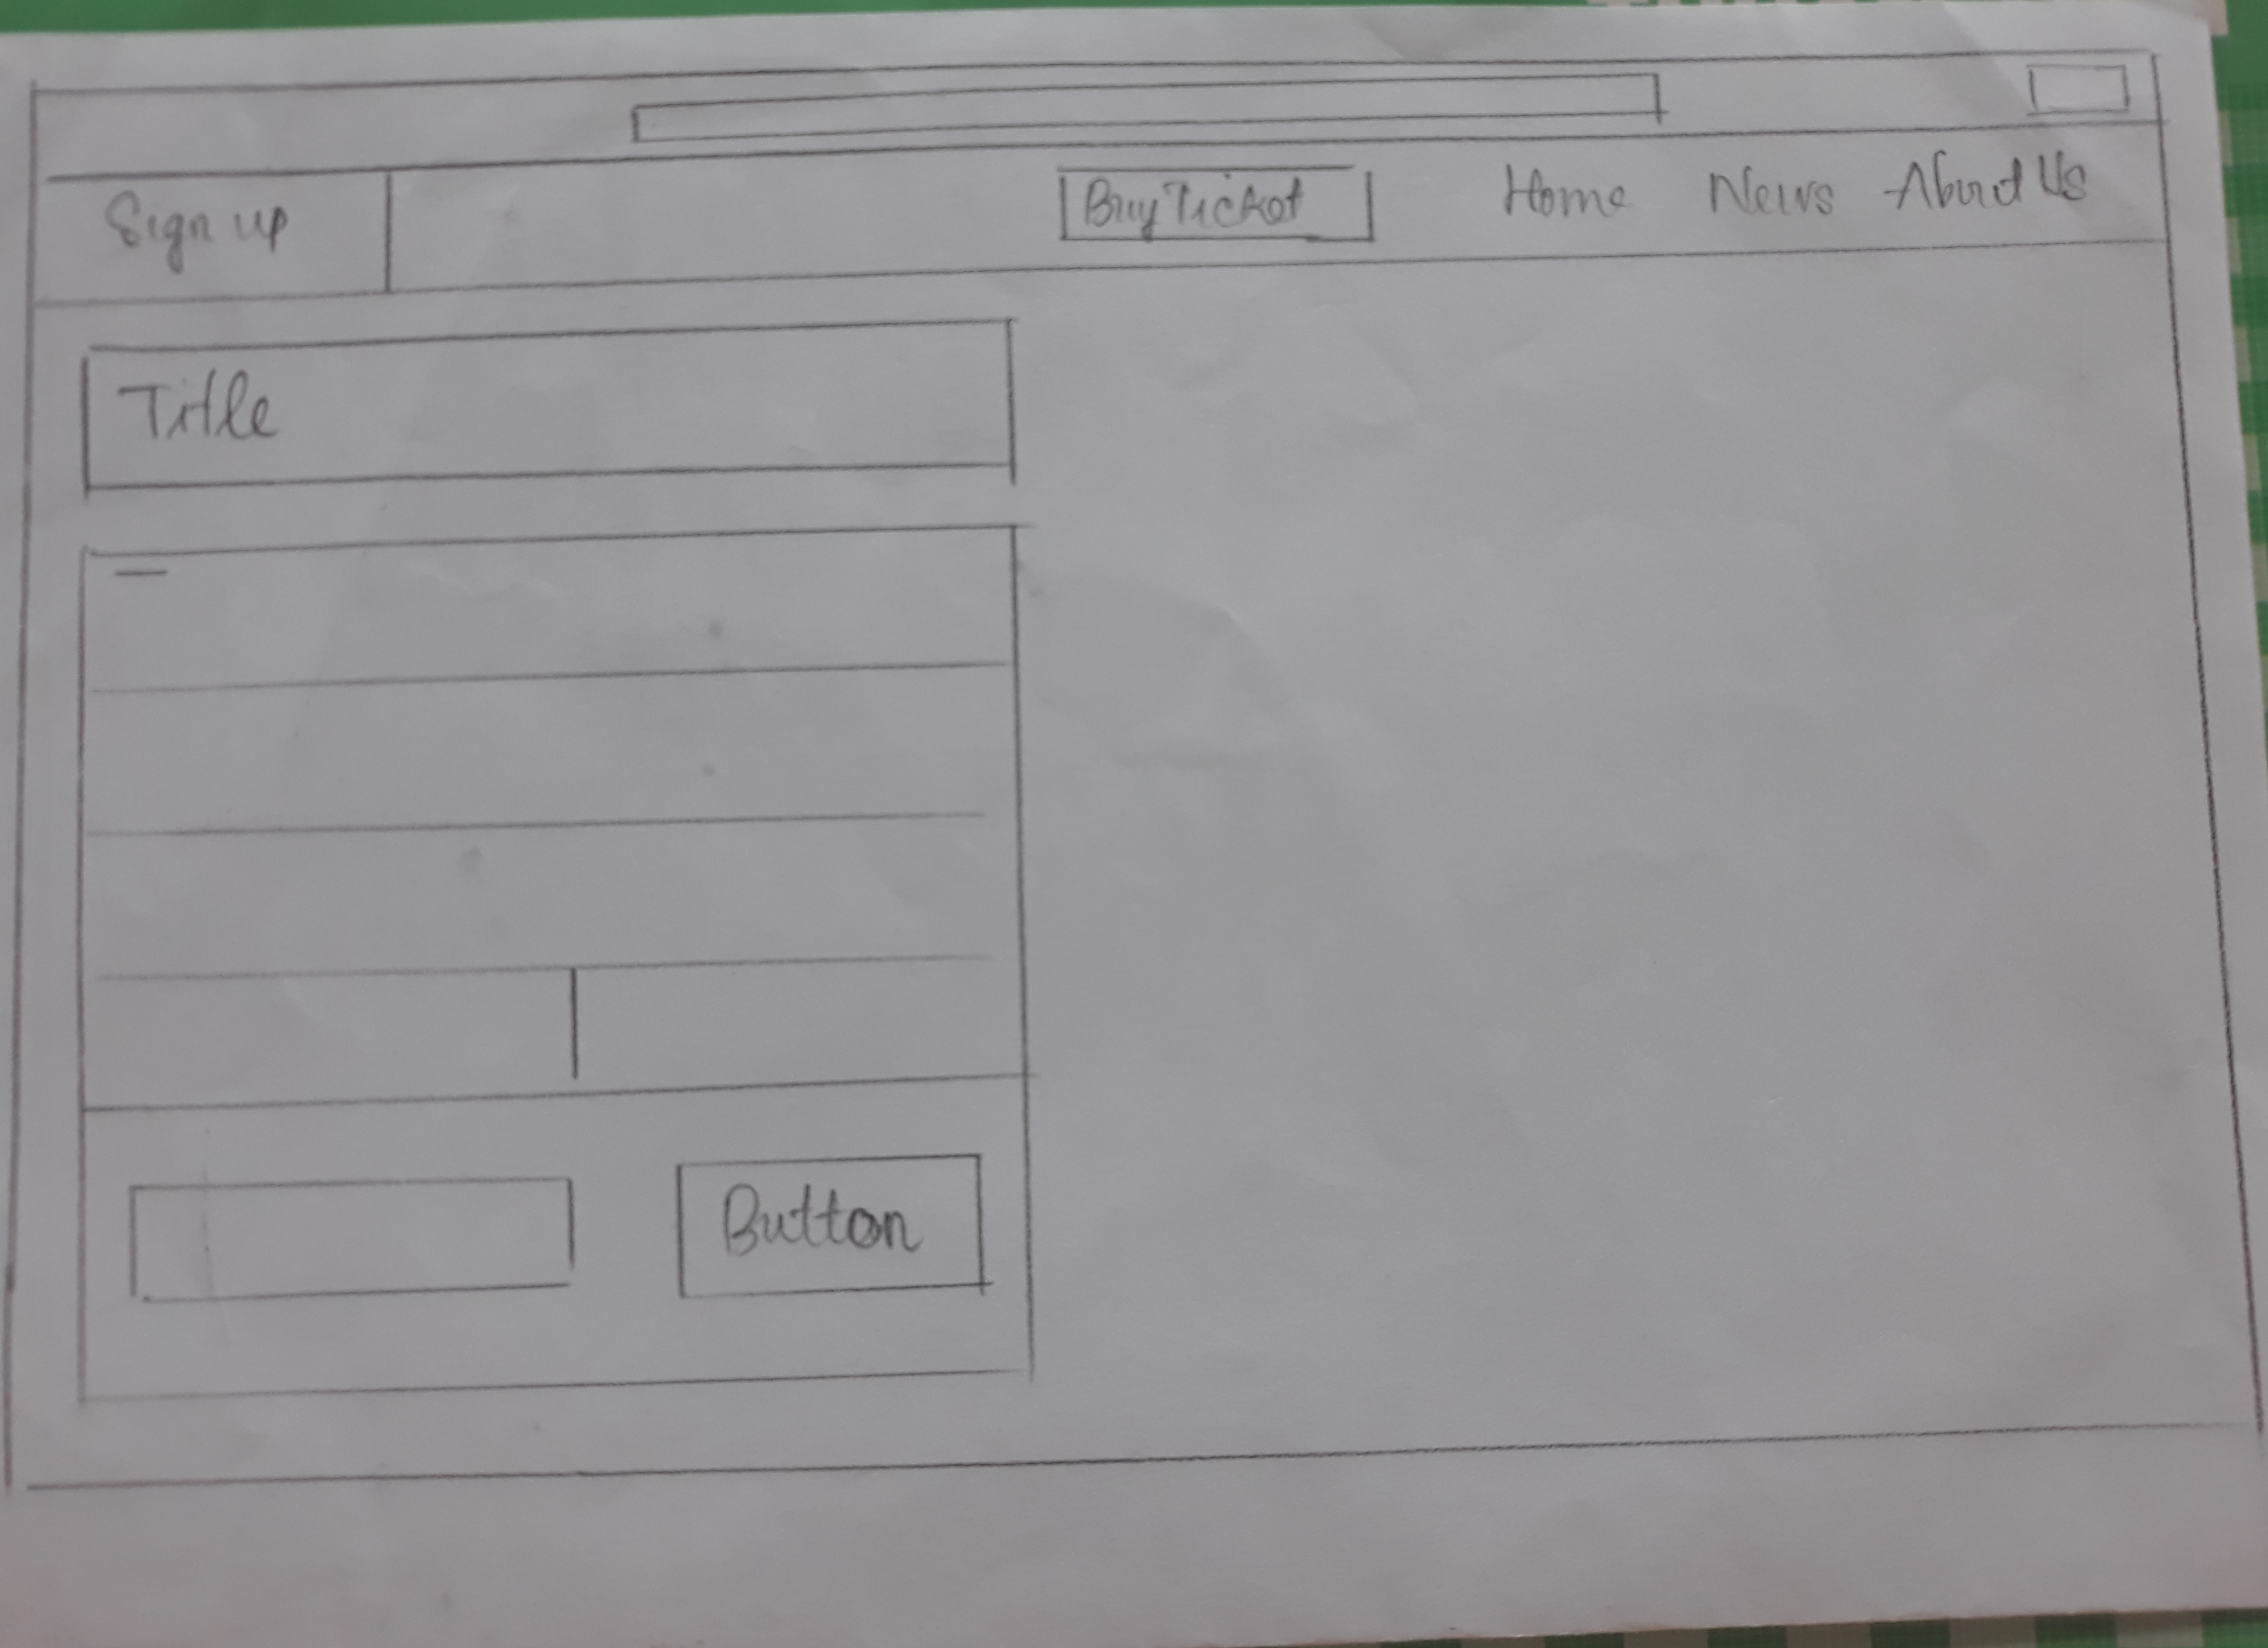 Sign up
Buy Ticket
Home News About Us
Title
Button